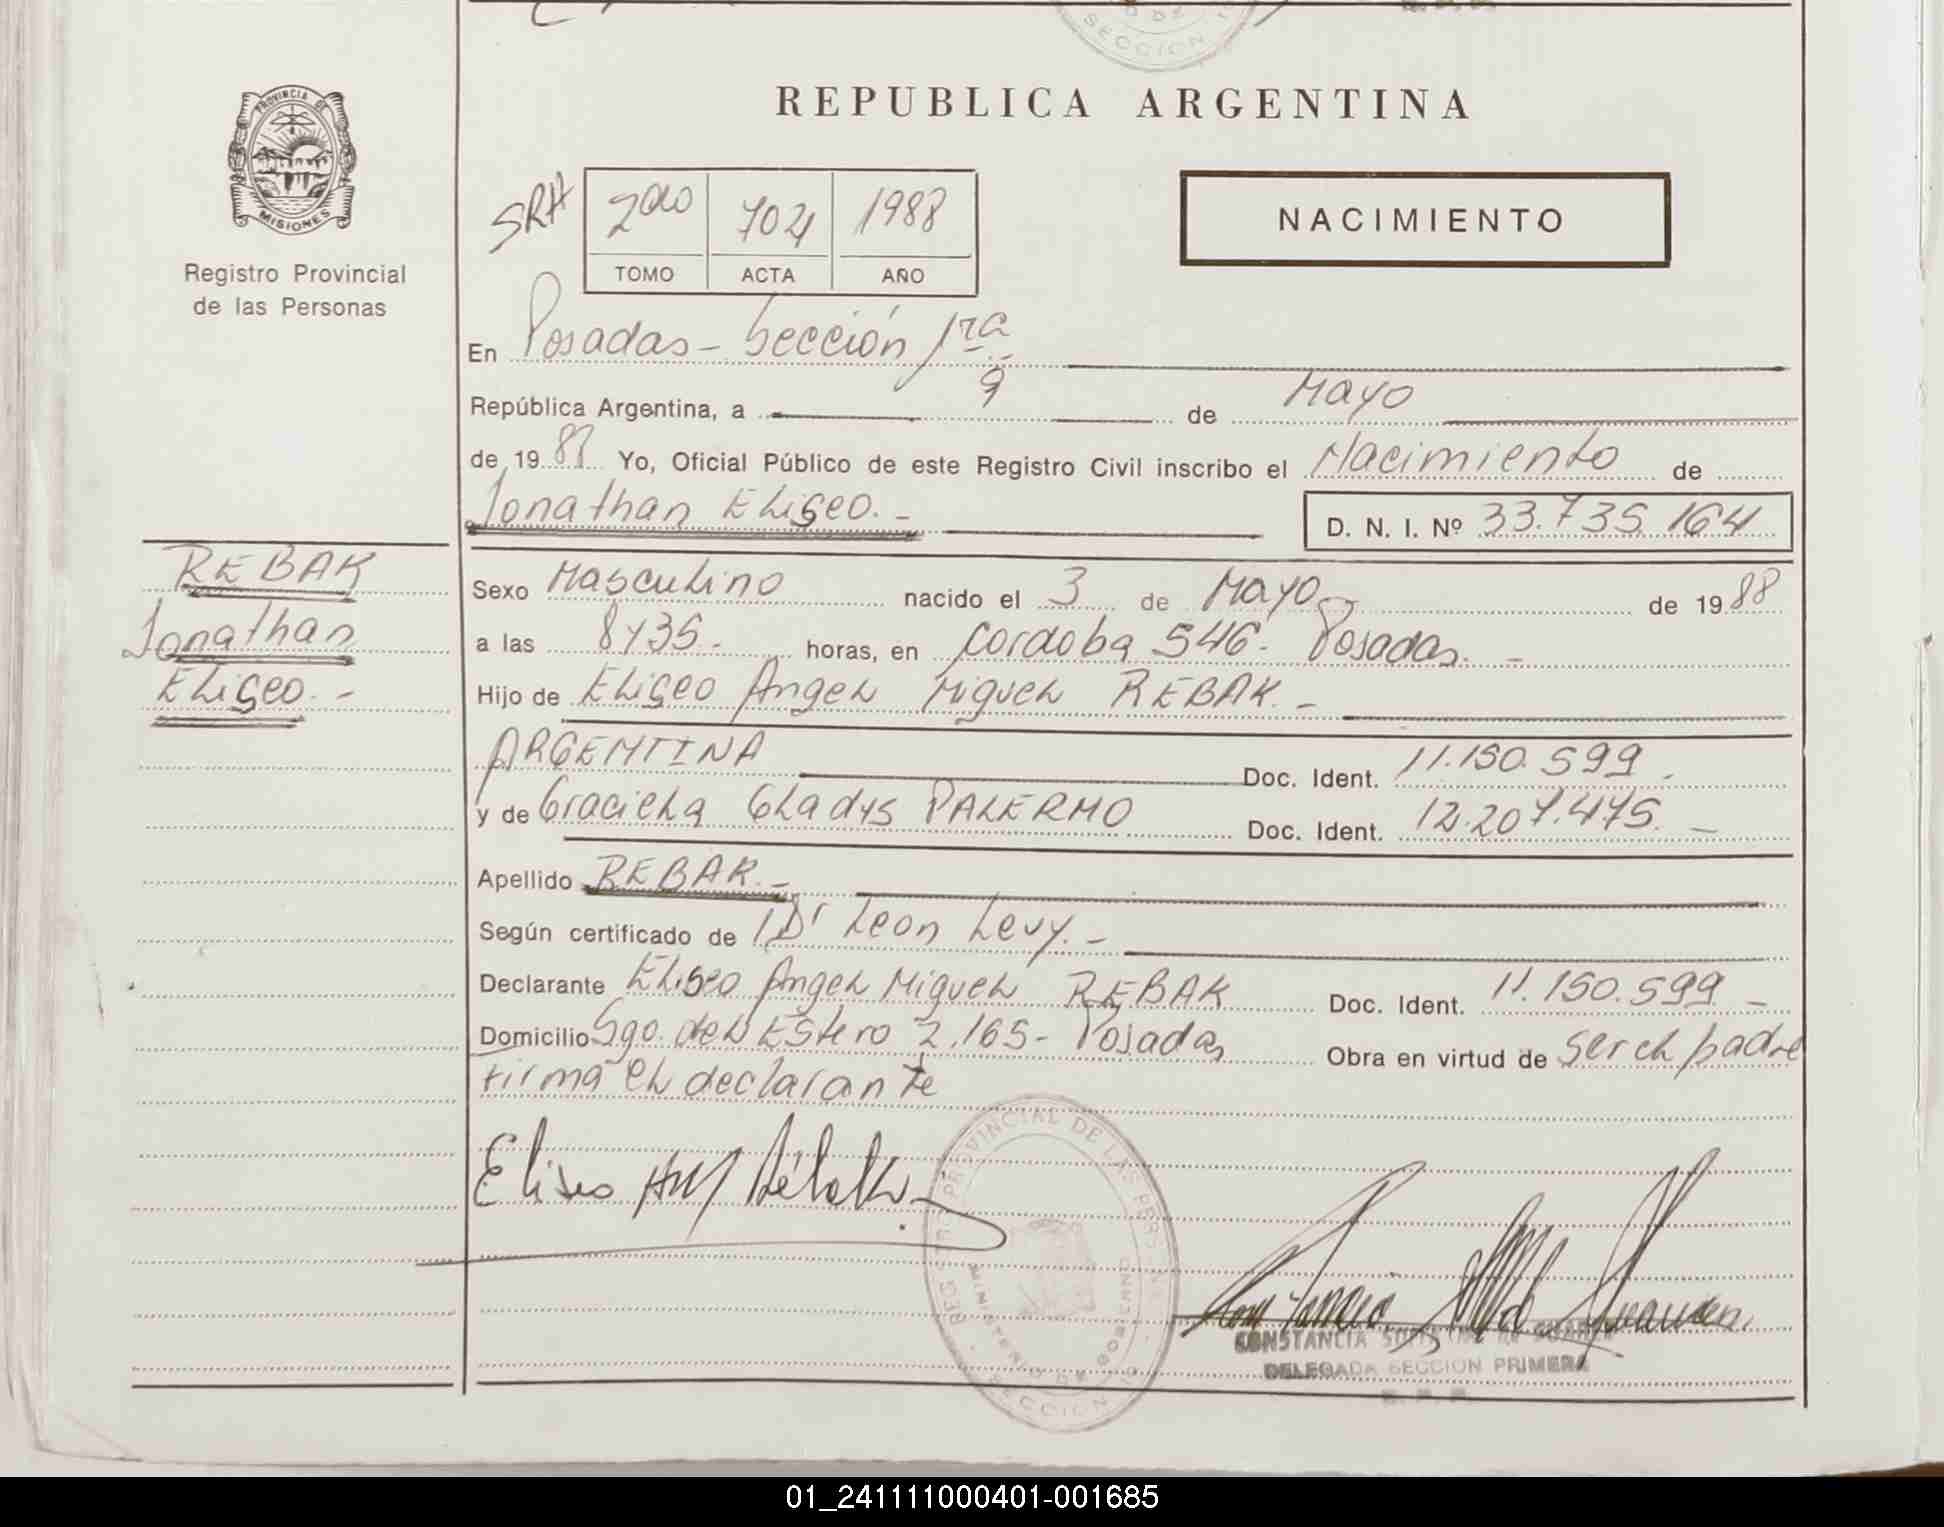 SECCION
REPUBLICA ARGENTINA
PROVINCIA DE
MISIONES
Registro Provincial
de las Personas
SRA
2do 702 1988
TOMO ACTA AÑO
NACIMIENTO
En Posadas - Sección 1ra
República Argentina, a 9 de Mayo
de 1988 Yo, Oficial Público de este Registro Civil inscribo el Nacimiento de
Jonathan Eliseo. -
D. N. I. Nº 33.735.164
REBAK
Jonathan
Eliseo. -
Sexo Masculino nacido el 3 de Mayo de 1988
a las 8 y 35. horas, en Cordoba 546. Posadas. -
Hijo de Eliseo Angel Miguel REBAK. -
ARGENTINA Doc. Ident. 11.150.599
y de Graciela Gladys PALERMO Doc. Ident. 12.207.475. -
Apellido REBAK. -
Según certificado de Dr Leon Levy. -
Declarante Eliseo Angel Miguel REBAK Doc. Ident. 11.150.599 -
Domicilio Sgo. del Estero 2.165 - Posadas Obra en virtud de ser el padre
Firma el declarante
Eliseo AM Rebak.
REG STRO PROVINCIAL DE LAS PERSONAS
MINISTERIO DE GOBIERNO
SECCION
CONSTANCIA
DELEGADA SECCION PRIMERA
01_241111000401-001685